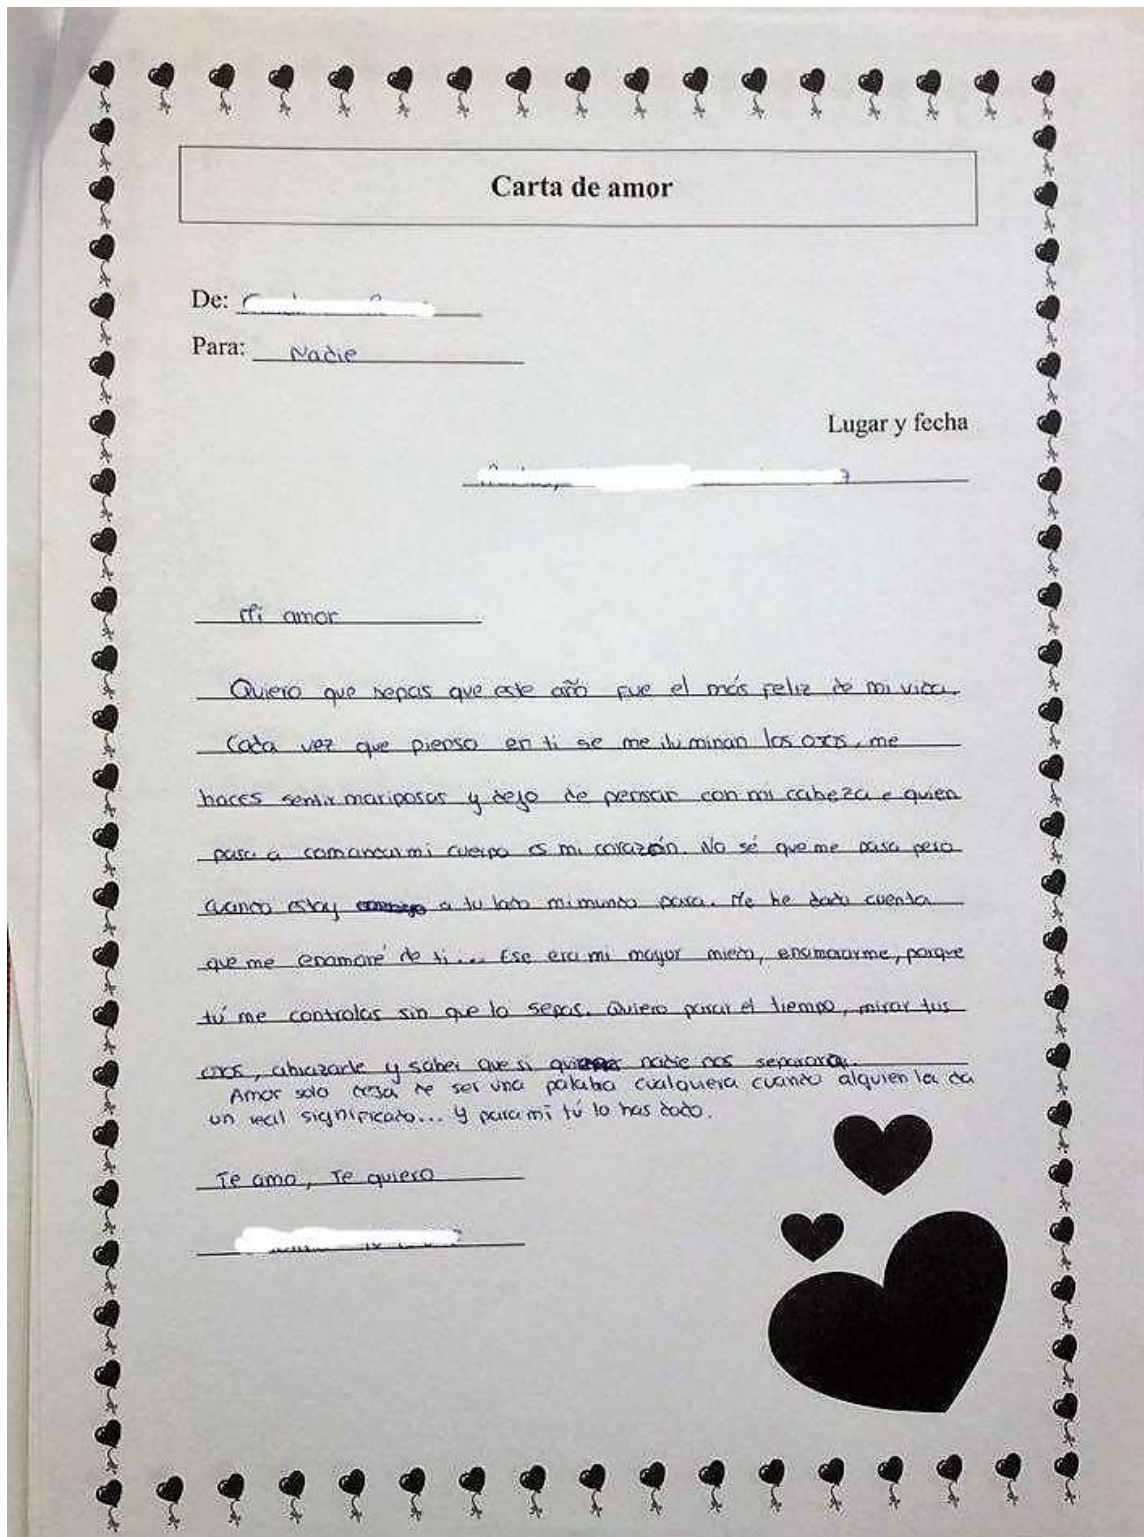 Carta de amor
De:
Para: Nadie
Lugar y fecha
Mi amor
Quiero que sepas que este año fue el más feliz de mi vida.
Cada vez que pienso en ti se me iluminan los ojos, me
haces sentir mariposas y dejo de pensar con mi cabeza e quien
pasa a comandar mi cuerpo es mi corazón. No sé que me pasa pero
cuando estoy a tu lado mi mundo para. Me he dado cuenta
que me enamoré de ti... Ese era mi mayor miedo, enamorarme, porque
tú me controlas sin que lo sepas. Quiero pasar el tiempo, mirar tus
ojos, abrazarle y saber que si nadie nos separará.
Amor solo deja de ser una palabra cualquiera cuando alguien le da
un real significado... y para mi tú lo has dado.
Te amo, Te quiero